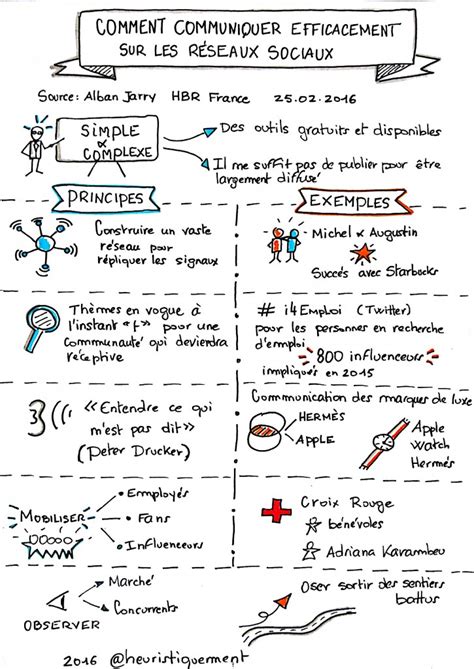 COMMENT COMMUNIQUER EFFICACEMENT
SUR LES RÉSEAUX SOCIAUX
Source: Alban Jarry HBR France 25.02.2016
SIMPLE
&
COMPLEXE
Des outils gratuits et disponibles
Il me suffit pas de publier pour être
largement diffusé
PRINCIPES
EXEMPLES
Construire un vaste
réseau pour
répliquer les signaux
Michel & Augustin
Succès avec Starbucks
Thèmes en vogue à
l'instant "t" pour une
Communauté qui deviendra
réceptive
# i4Emploi (Twitter)
pour les personnes en recherche
d'emploi
800 influenceurs
impliqués en 2015
<<Entendre ce qui
m'est pas dit>>
(Peter Drucker)
Communication des marques de luxe
HERMÈS
APPLE
Apple
Watch
Hermès
MOBILISER
Employés
Fans
Influenceurs
Croix Rouge
bénévoles
Adriana Karambeu
OBSERVER
Marché
Concurrents
Oser sortir des sentiers
battus
2016 @heuristiquement